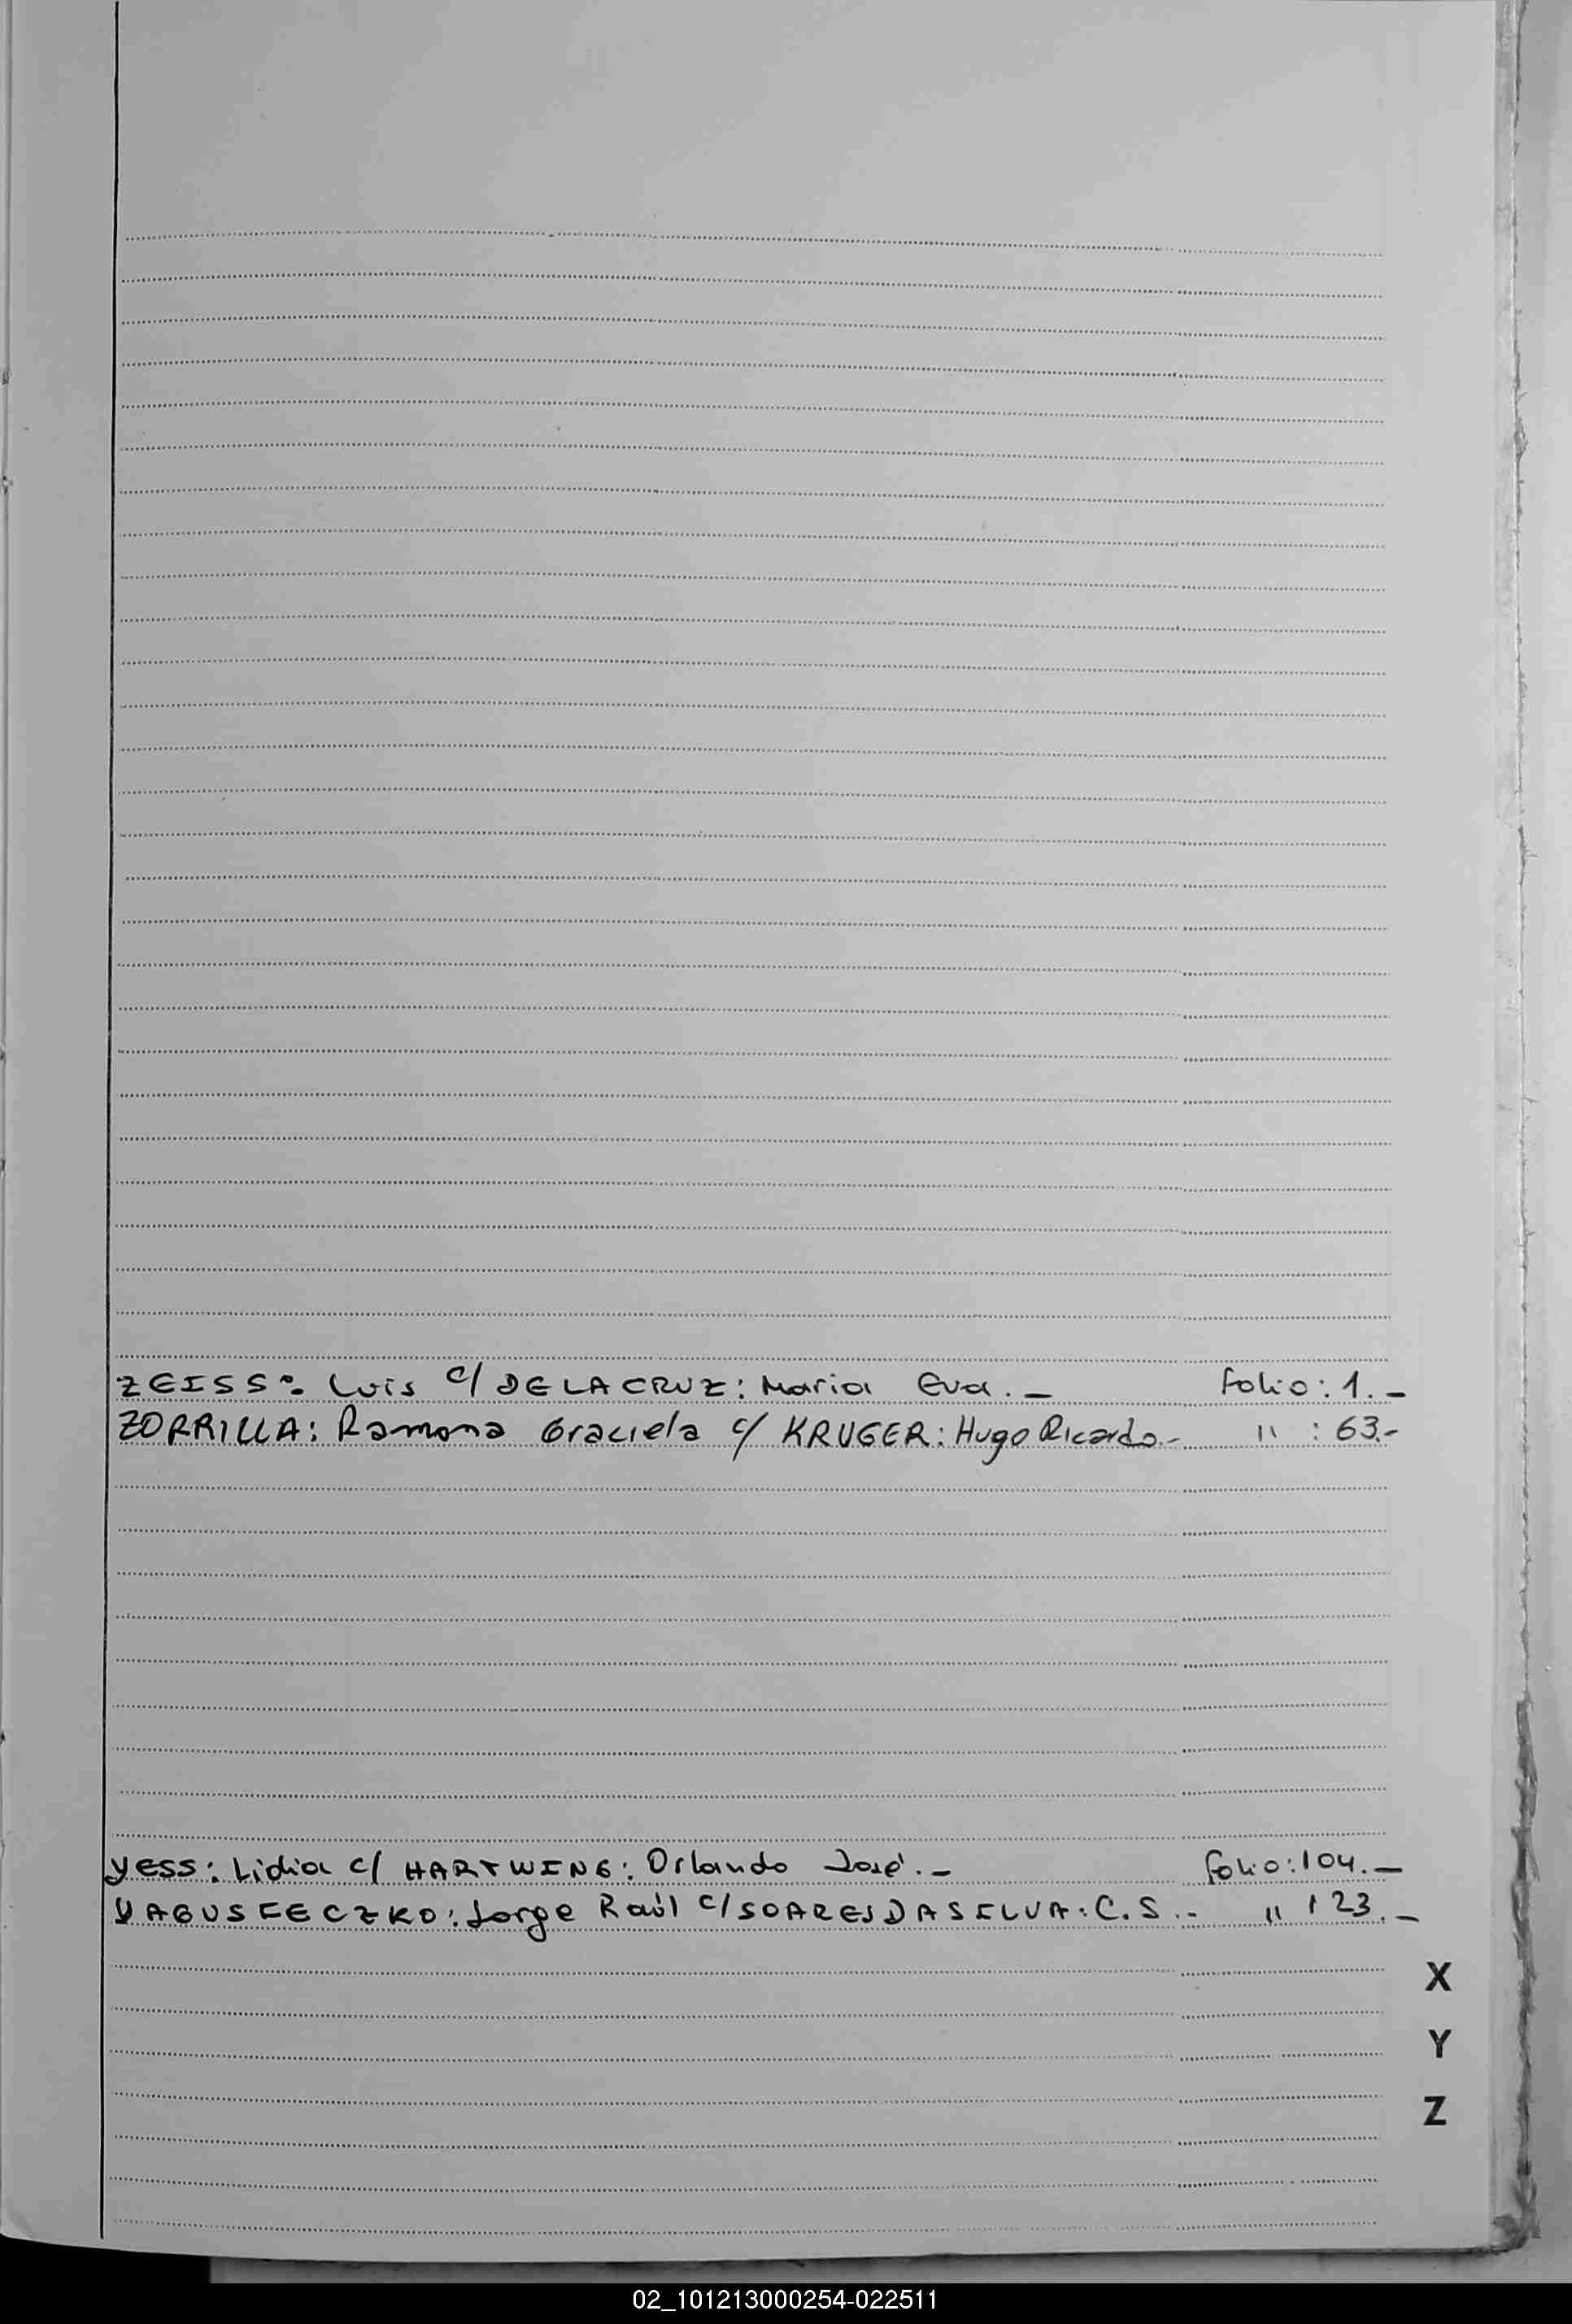 ZEISS: Luis c/ DELACRUZ: Maria Eva.- folio: 1.-
ZORRILLA: Ramona Graciela c/ KRUGER: Hugo Ricardo.- " : 63.-
YESS: Lidia c/ HARTWING: Orlando José.- folio: 104.-
YAGUSFECZKO: Jorge Raúl c/ SOARES DASILVA: C.S.- " 123.-
X
Y
Z
02_101213000254-022511